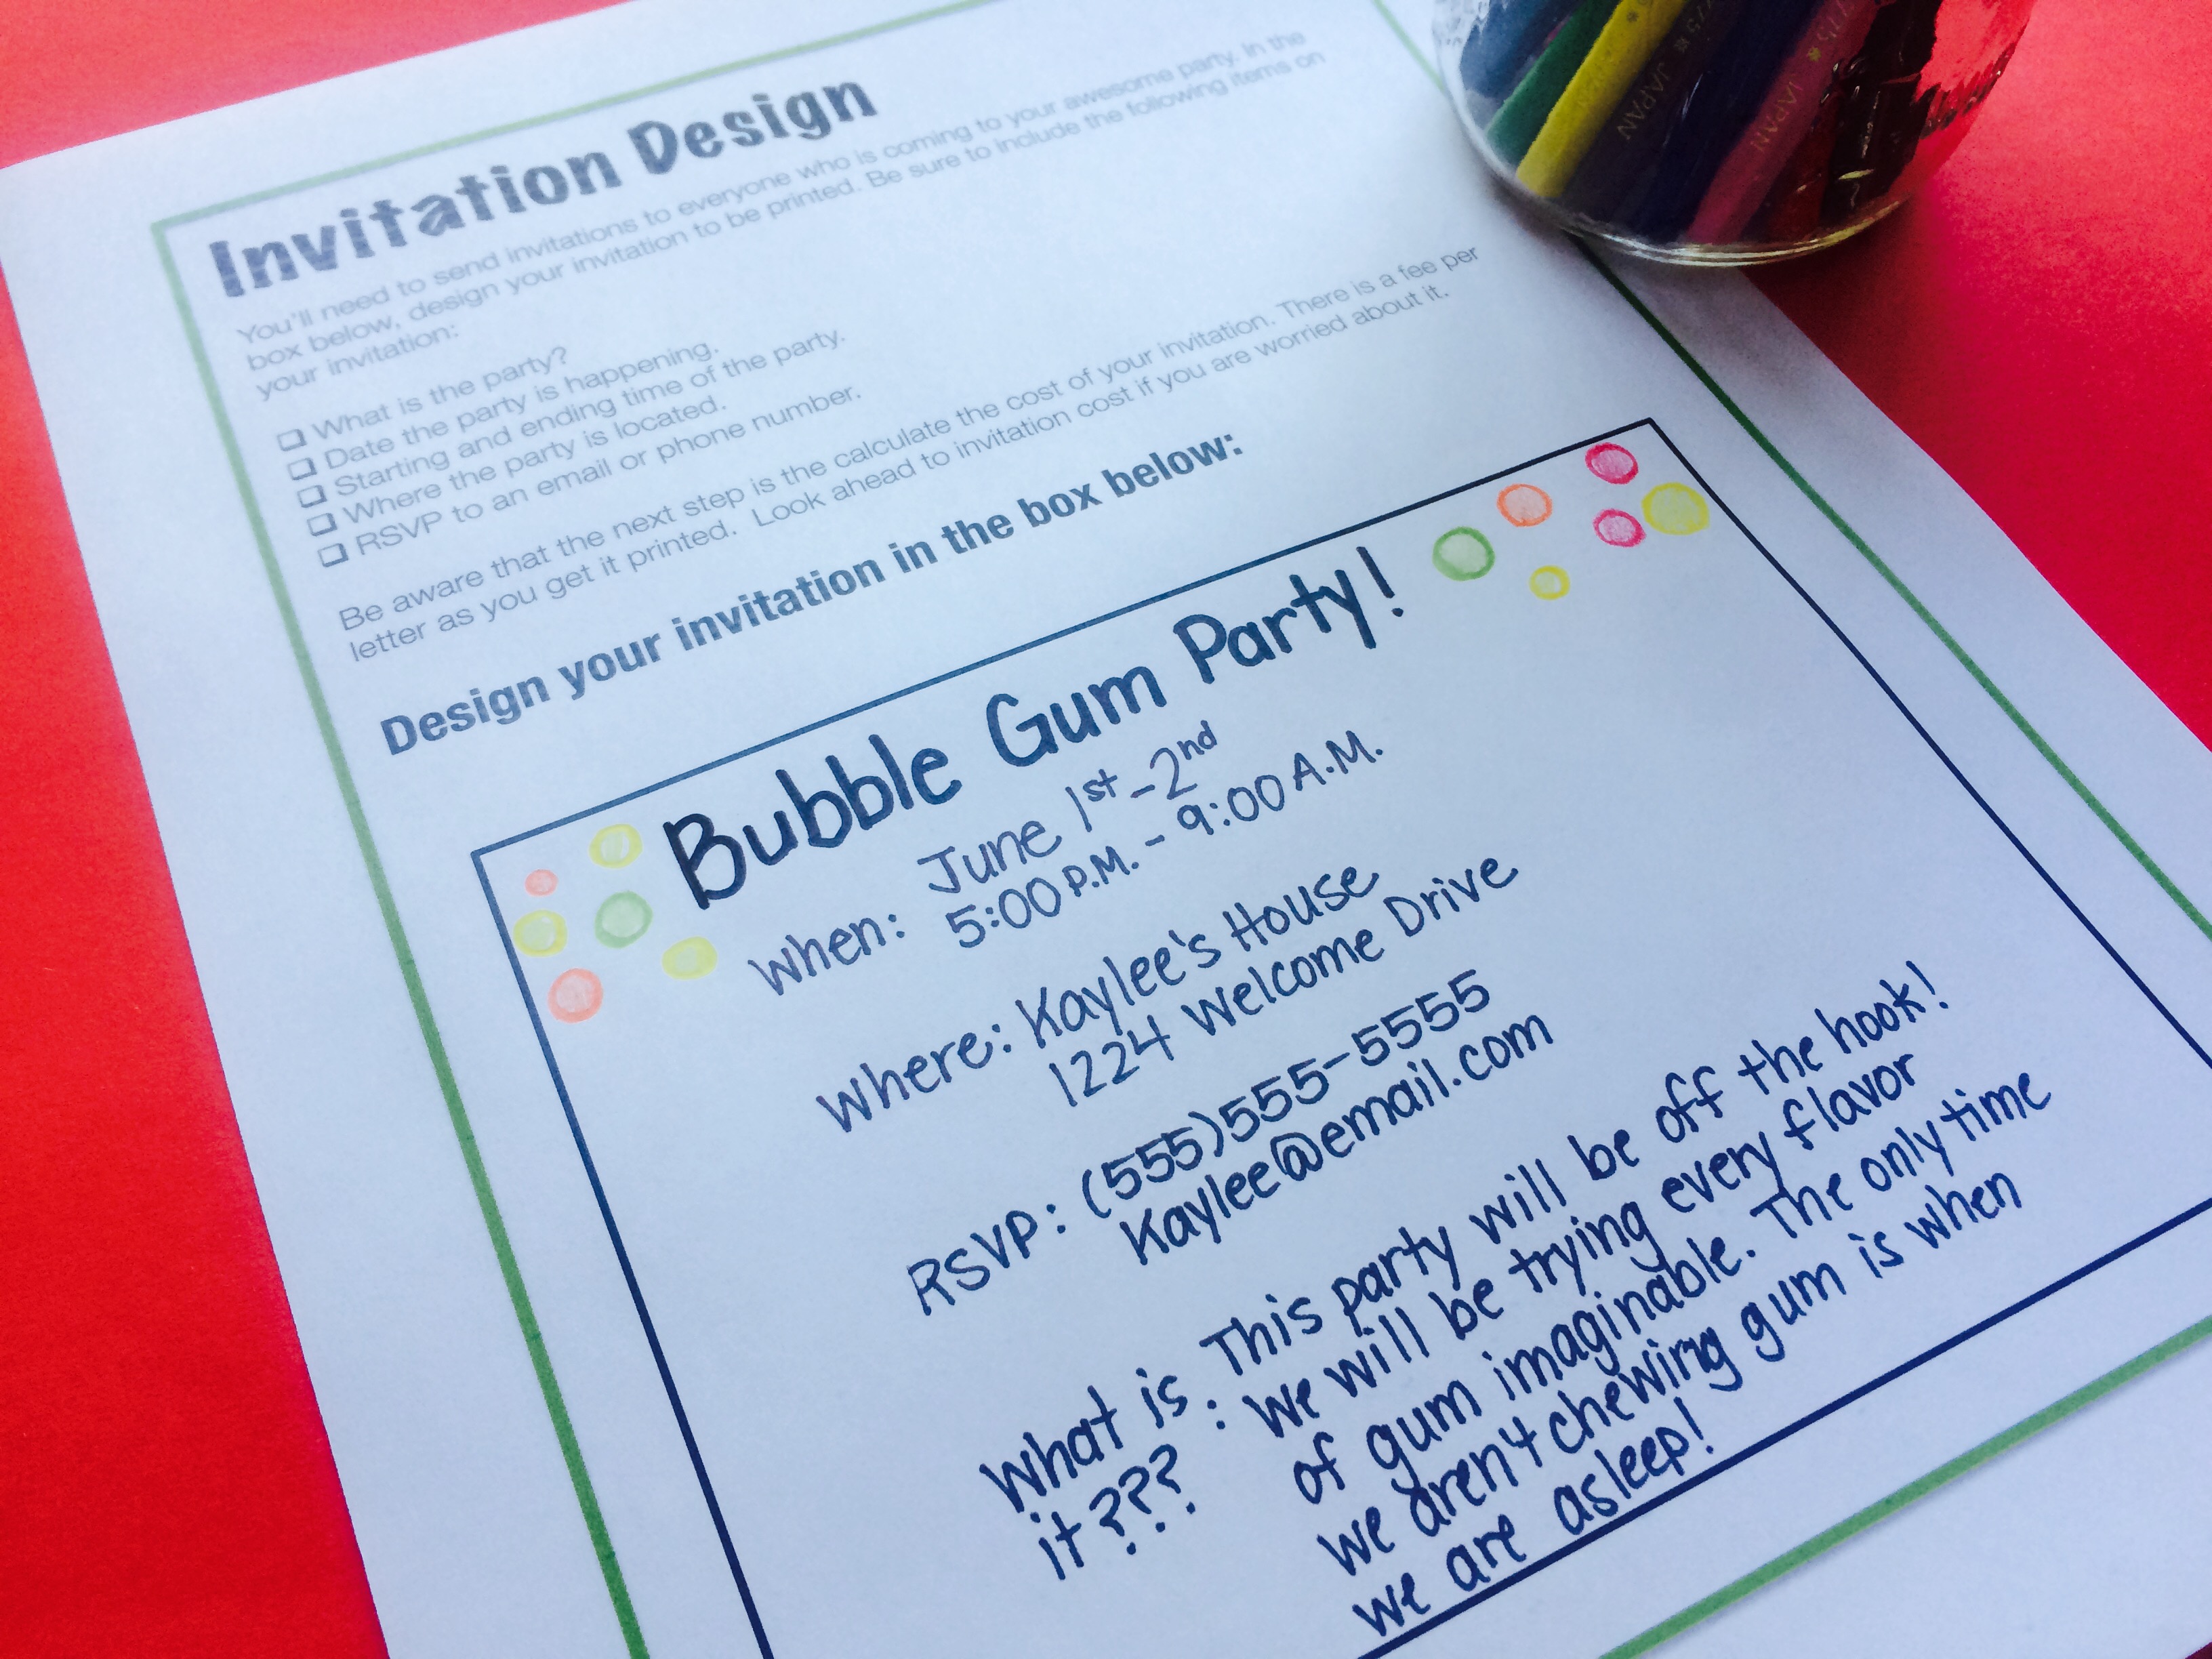 Invitation Design
You'll need to send invitations to everyone who is coming to your awesome party. In the
box below, design your invitation to be printed. Be sure to include the following items on
your invitation:
❑ What is the party?
❑ Date the party is happening.
❑ Starting and ending time of the party.
❑ Where the party is located.
❑ RSVP to an email or phone number.
Be aware that the next step is the calculate the cost of your invitation. There is a fee per
letter as you get it printed. Look ahead to invitation cost if you are worried about it.
Design your invitation in the box below:
Bubble Gum Party!
When: June 1st-2nd
5:00 P.M. - 9:00 A.M.
Where: Kaylee's House
1224 Welcome Drive
RSVP: (555)555-5555
Kaylee@email.com
What is: This party will be off the hook!
it??? We will be trying every flavor
of gum imaginable. The only time
we aren't chewing gum is when
we are asleep!
JAPAN
JAPAN